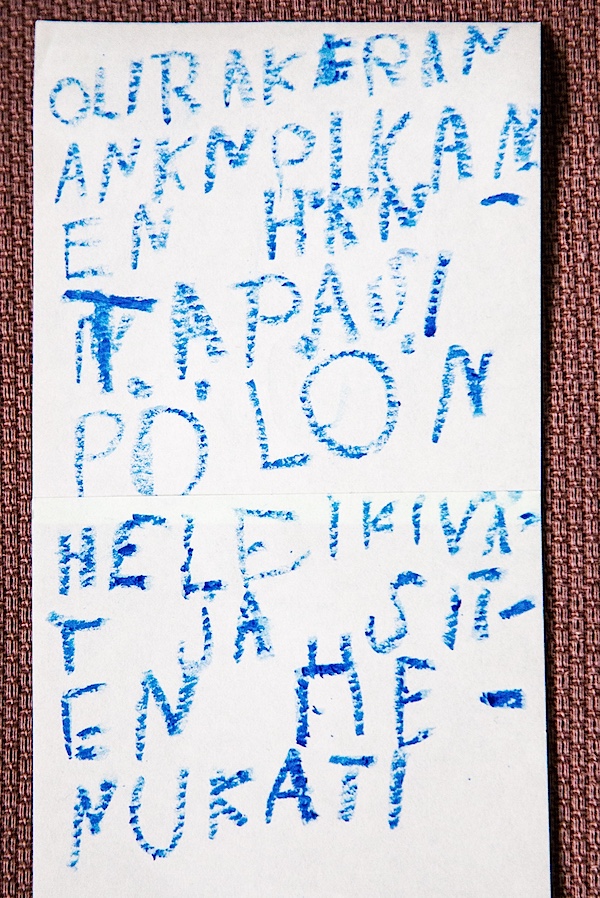 OLI RAKERAN
ANKN PIKAN-
EN HKN
T.A. PAOJI
POLON
HELE IKIVA-
T JA SIT-
EN HE-
NUKATI